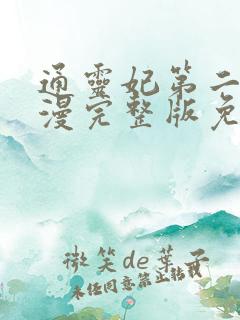 通靈妃第二
漫完整版免
微笑de葉子
未任同意禁止轉載